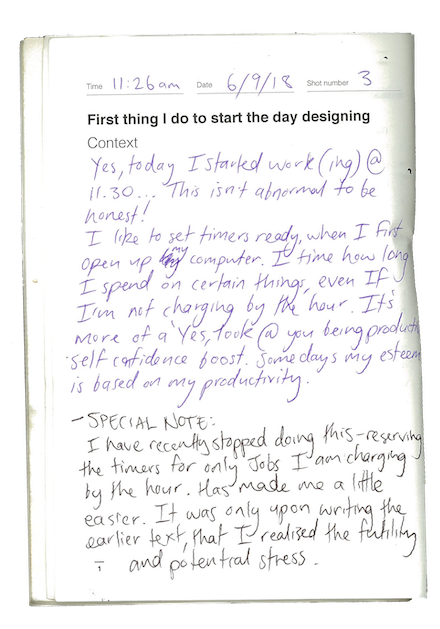 Time 11:26am Date 6/9/18 Shot number 3
First thing I do to start the day designing
Context
Yes, today I started work(ing) @
11.30... This isn't abnormal to be
honest!
I like to set timers ready, when I first
open up my computer. I time how long
I spend on certain things, even If
I'm not charging by the hour. It's
more of a 'Yes, look @ you being producti
self confidence boost. Some days my esteem
is based on my productivity.
- SPECIAL NOTE:
I have recently stopped doing this - reserving
the timers for only Jobs I am charging
by the hour. Has made me a little
easier. It was only upon writing the
earlier text, that I realised the futility
and potential stress.